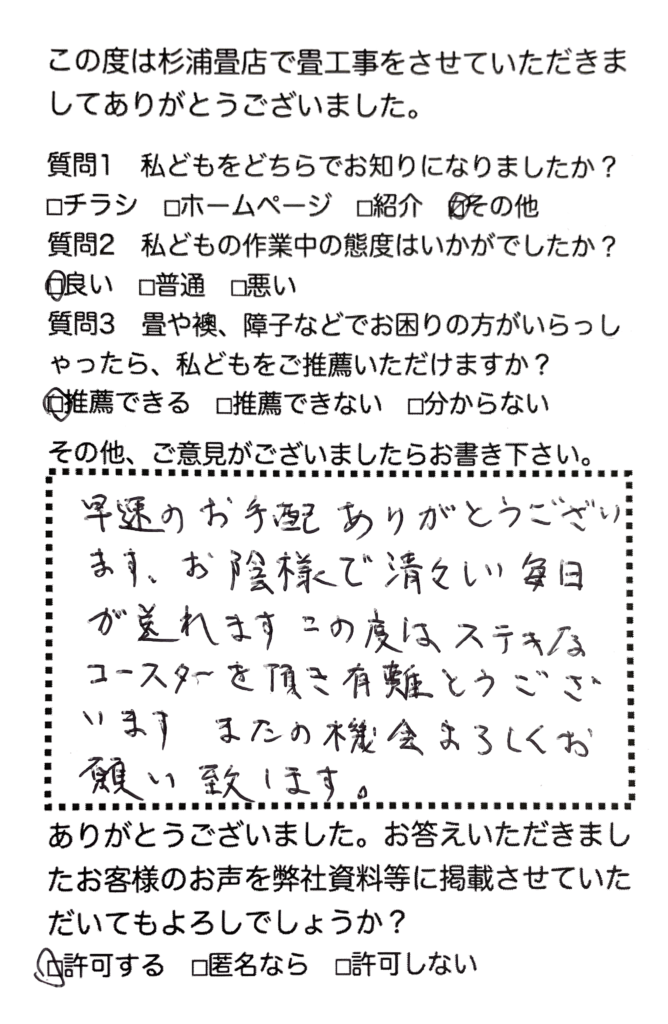 この度は杉浦畳店で畳工事をさせていただきま
してありがとうございました。
質問1　私どもをどちらでお知りになりましたか？
□チラシ　□ホームページ　□紹介　☑その他
質問2　私どもの作業中の態度はいかがでしたか？
□良い　□普通　□悪い
質問3　畳や襖、障子などでお困りの方がいらっし
ゃったら、私どもをご推薦いただけますか？
□推薦できる　□推薦できない　□分からない
その他、ご意見がございましたらお書き下さい。
早速のお手配ありがとうござい
ます、お陰様で清々しい毎日
が送れますこの度はステキな
コースターを頂き有難とうござ
います またの機会よろしくお
願い致します。
ありがとうございました。お答えいただきまし
たお客様のお声を弊社資料等に掲載させていた
だいてもよろしでしょうか？
□許可する　□匿名なら　□許可しない